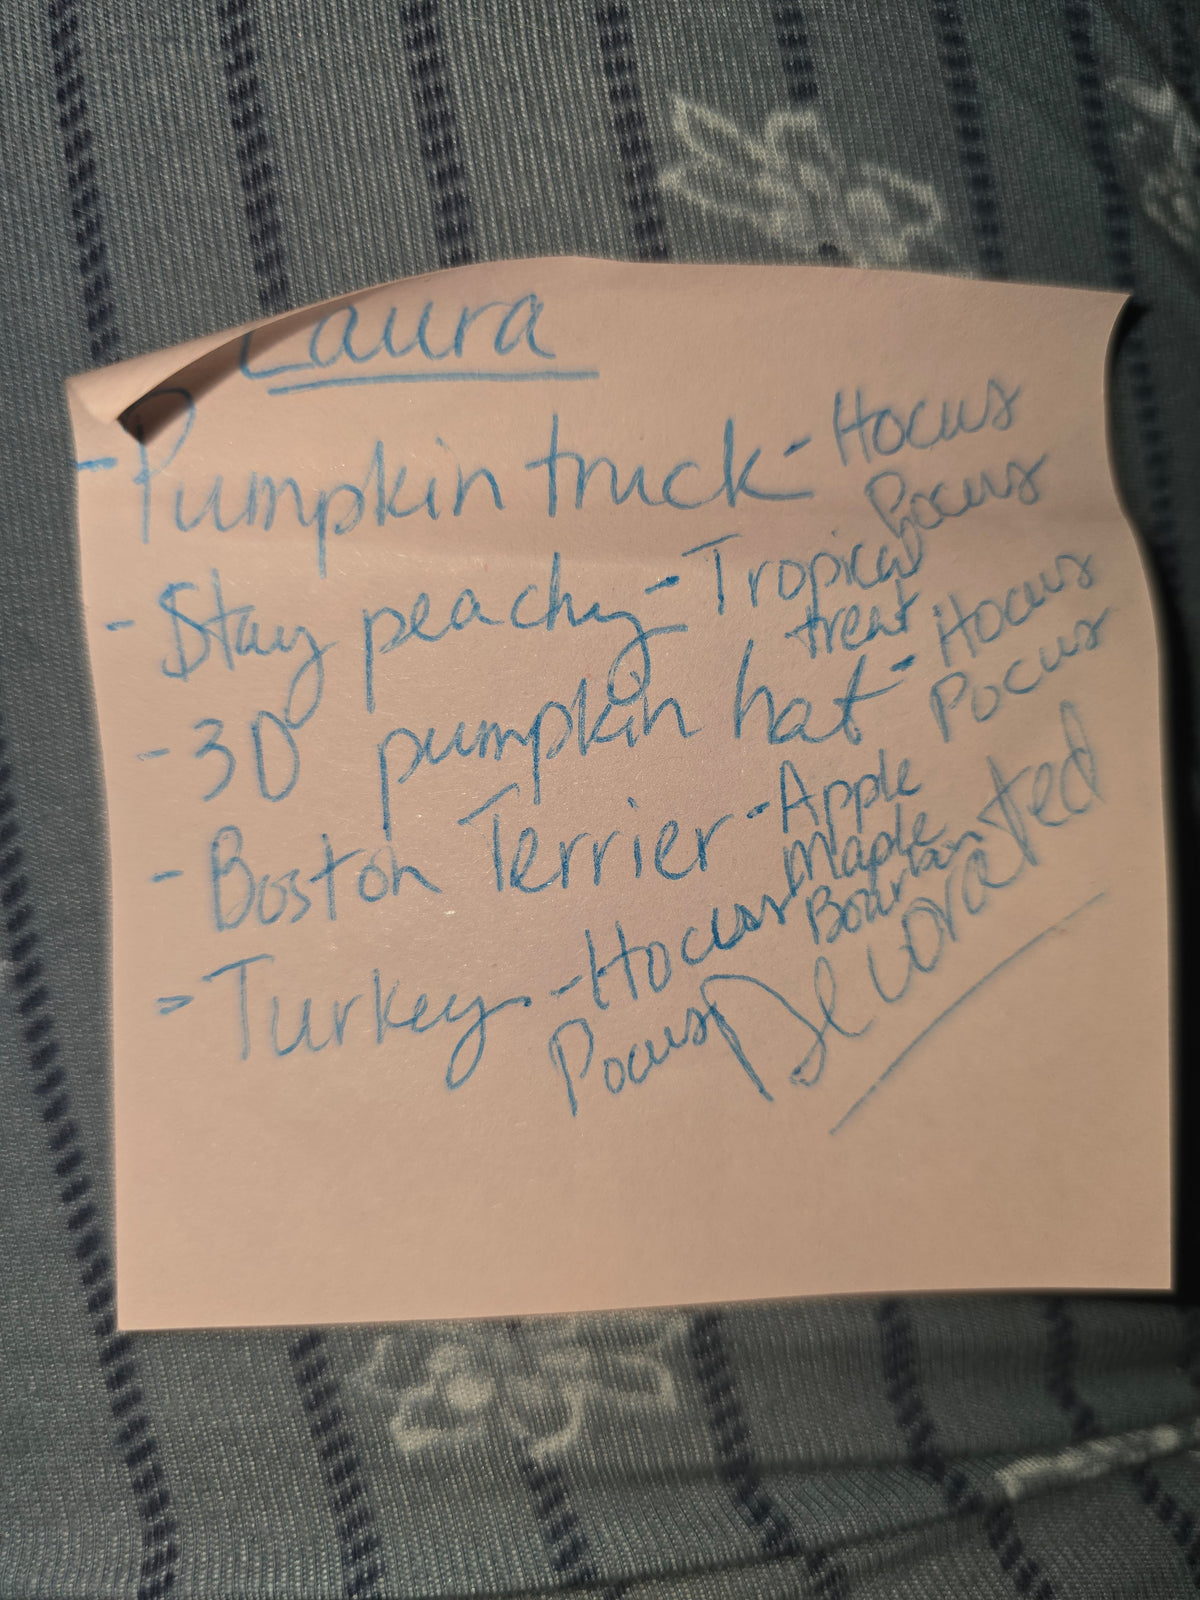 Laura
- Pumpkin truck - Hocus
Pocus
- Stay peachy - Tropical
treat
- 3D pumpkin hat - Hocus
Pocus
- Boston Terrier - Apple
Maple
Bourbon
- Turkey - Hocus
Pocus
Decorated